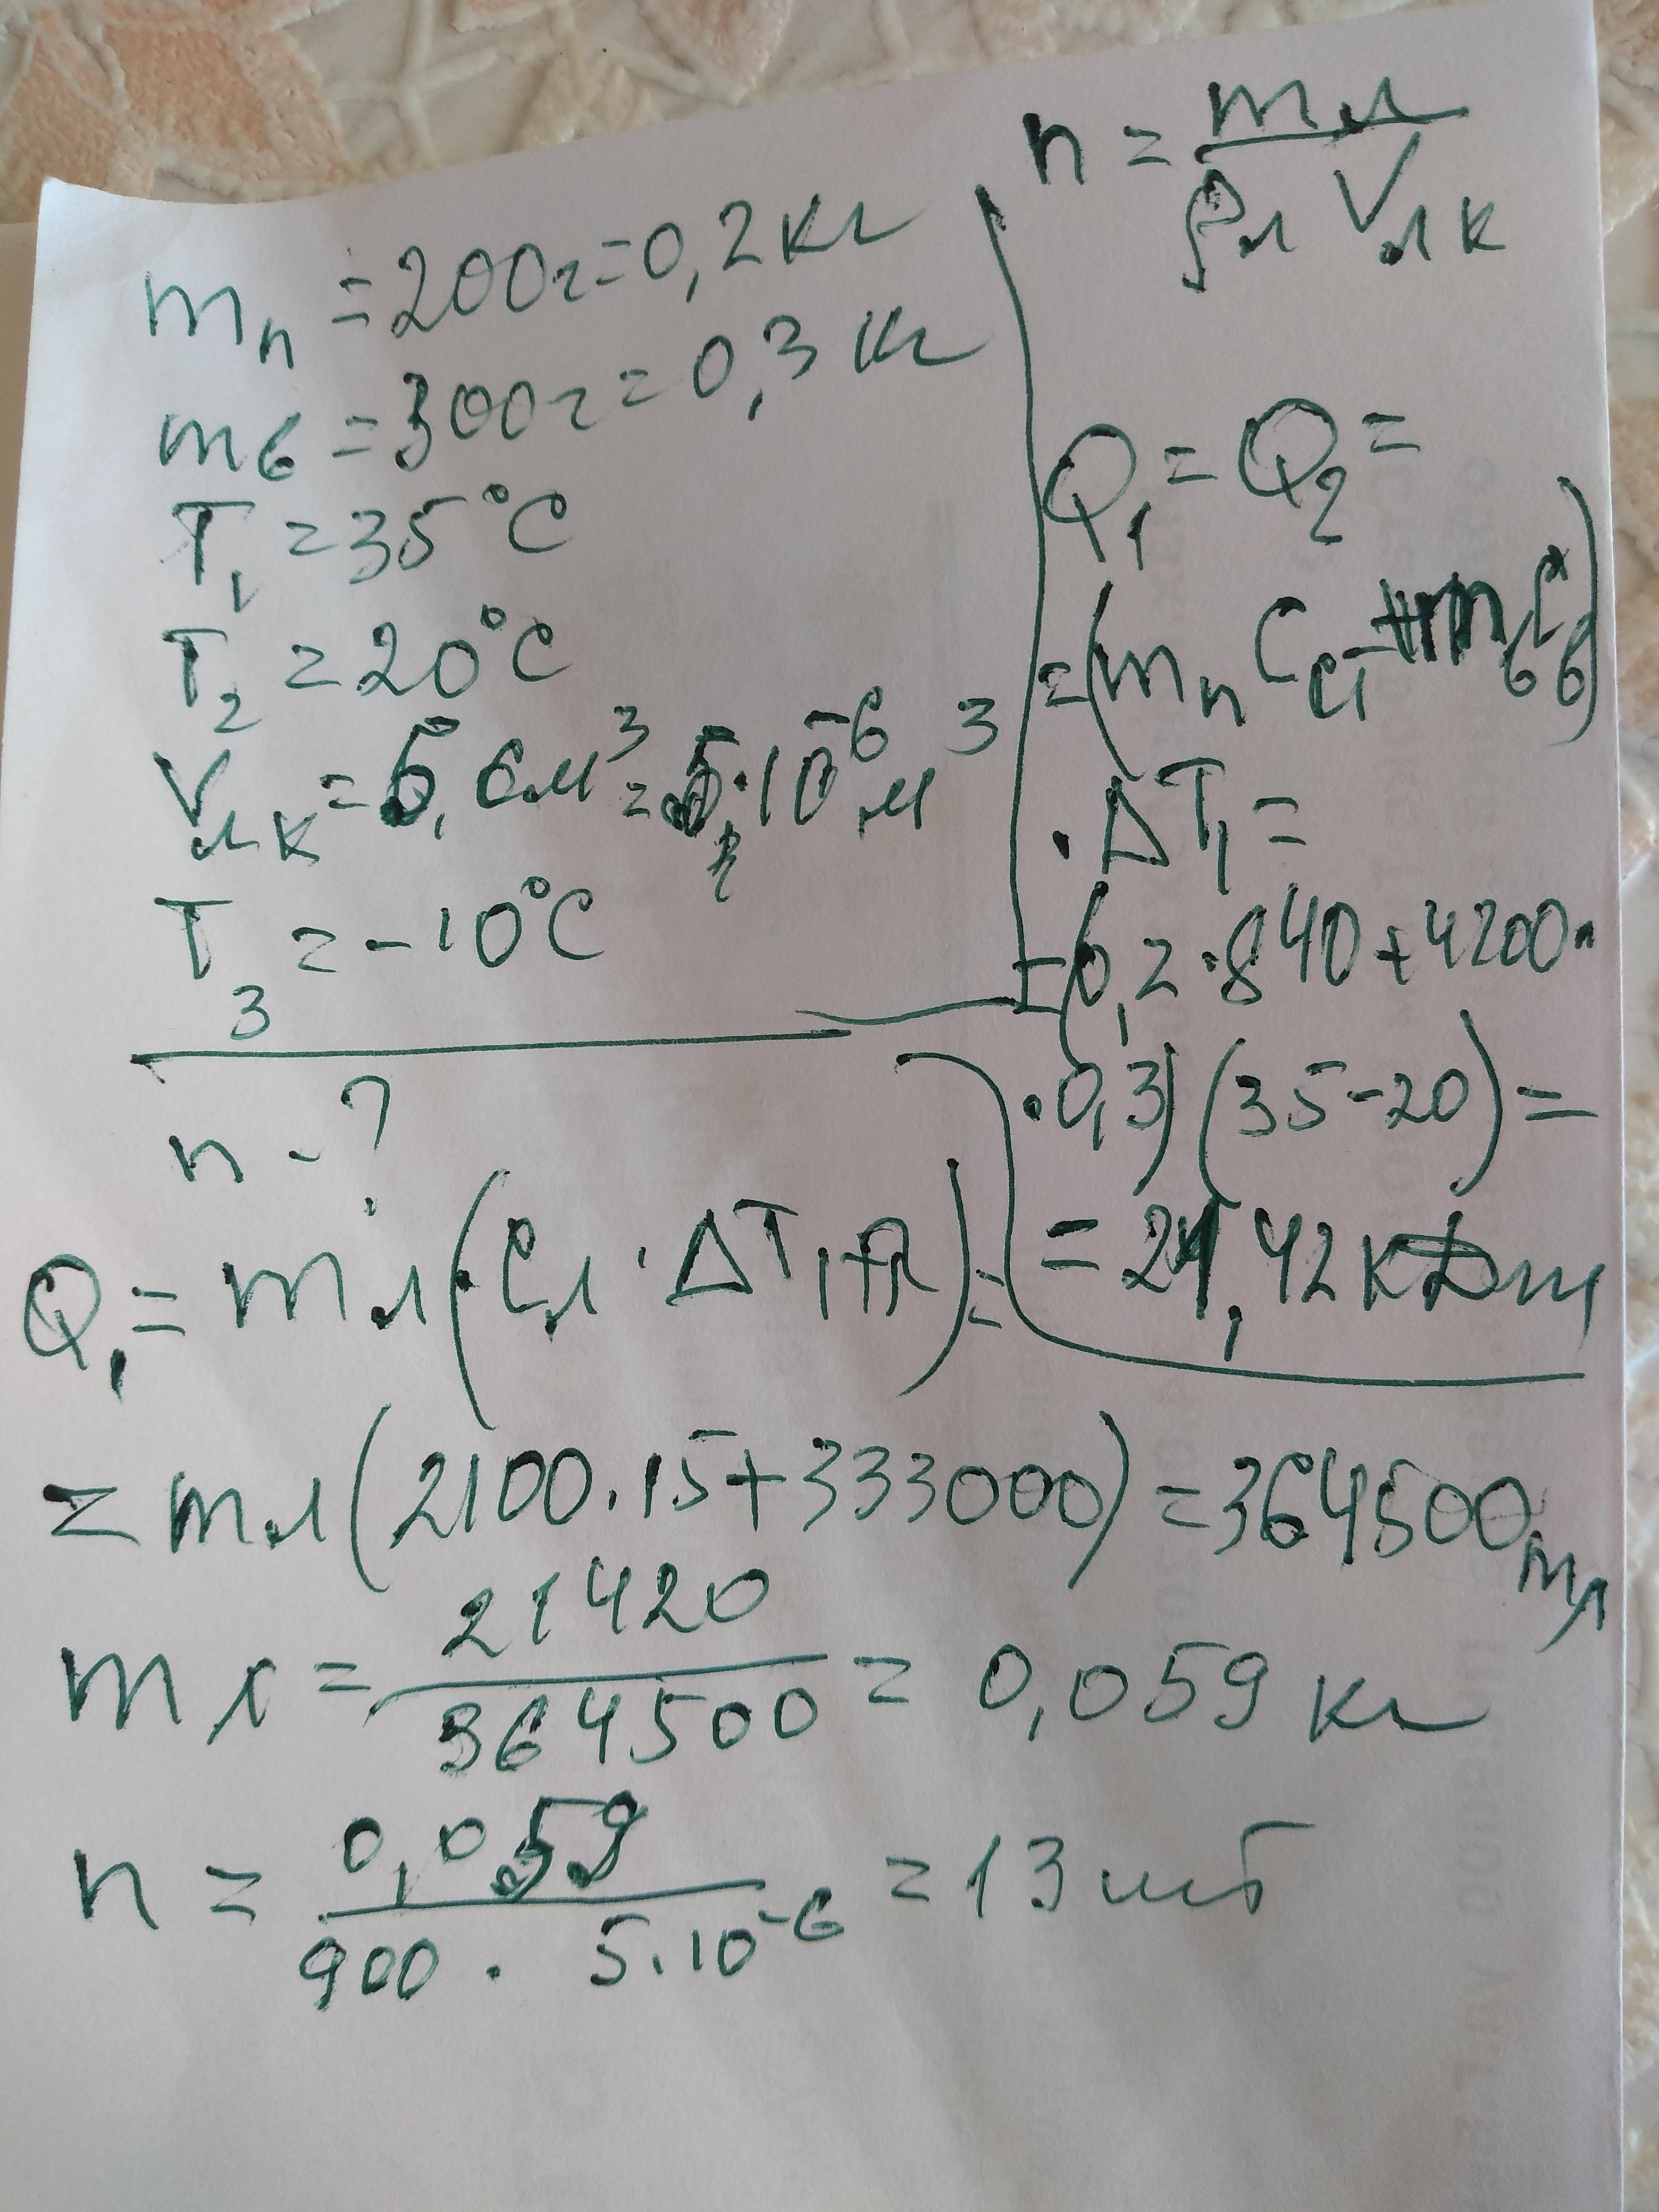 mп = 200г = 0,2 кг
mв = 300г = 0,3 кг
T₁ = 35°C
T₂ = 20°C
Vлк = 5, см³ = 5,·10⁻⁶ м³
T₃ = -10°C
n - ?
n = mл / ρл Vлк
Q₁ = Q₂ =
= (mп Cст + mв Cв)
· ΔT₁ =
= (0,2·840 + 4200·
·0,3) (35-20) =
= 21,42 кДж
Q₁ = mл (Cл · ΔT₁ + λ) =
= mл (2100·15 + 333000) = 364500 mл
mл = 21420 / 364500 = 0,059 кг
n = 0,059 / 900 · 5·10⁻⁶ = 13 шт